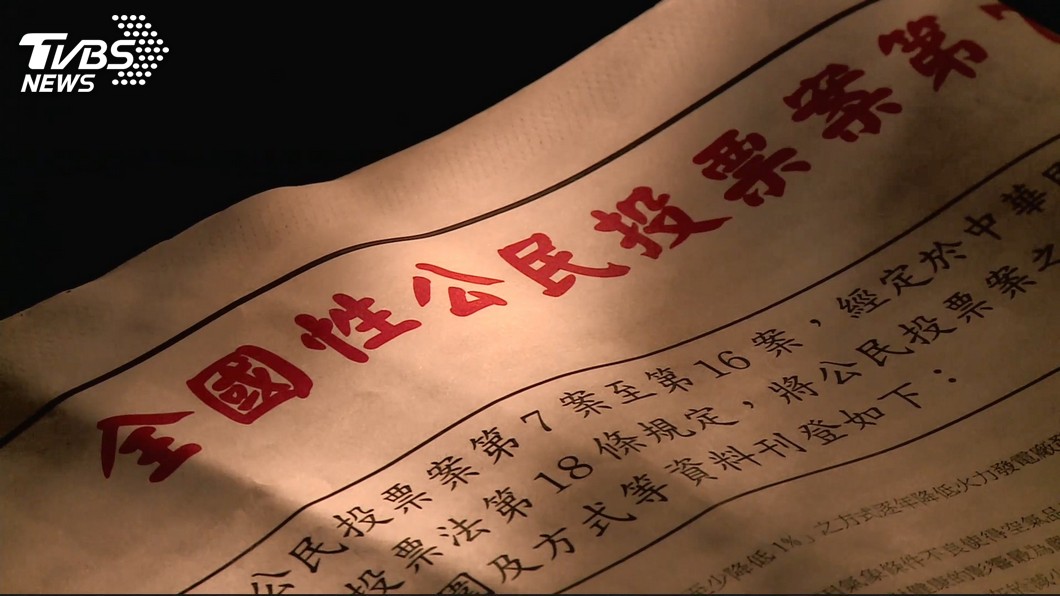 TVBS
NEWS
全國性公民投票案第
公民投票案第7案至第16案，經定於中華
投票法第18條規定，將公民投票案之
圍及方式等資料刊登如下：
至少降低1%」之方式逐年降低火力發電廠